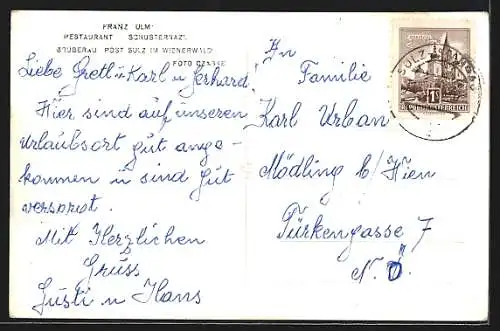 FRANZ ULM
RESTAURANT SCHUSTERNAZL
GRUBERAU POST SULZ IM WIENERWALD
FOTO
Liebe Gretl u. Karl u Gerhard!
Hier sind auf unseren
Urlaubsort gut ange-
kommen u sind gut
versorgt.
Mit Herzlichen
Gruss
Gusti u Hans
An
Familie
Karl Urban
Mödling b/Wien
Türkengasse 7
N.Ö
SULZ
1S
REPUBLIK ÖSTERREICH